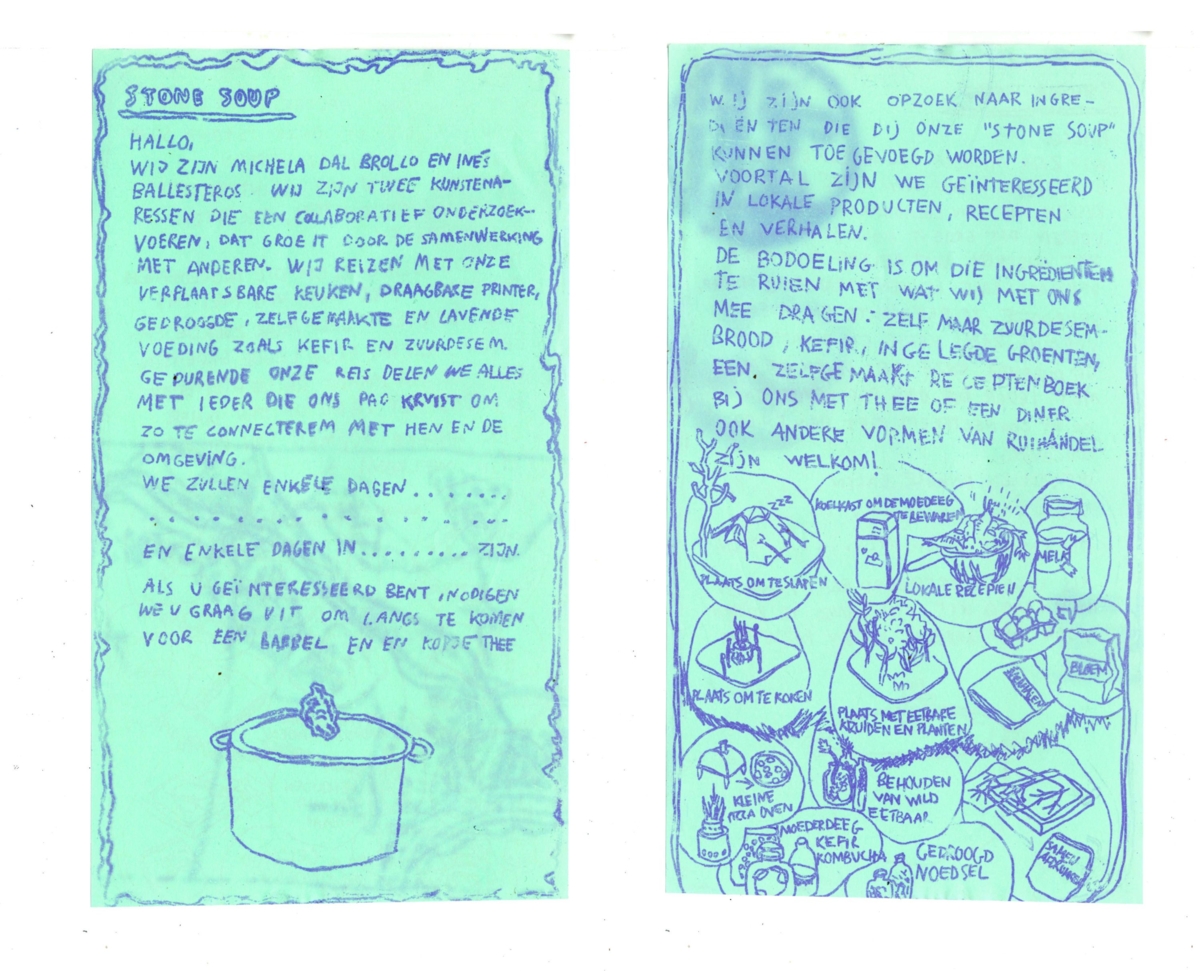 STONE SOUP
HALLO,
WIJ ZIJN MICHELA DAL BROLLO EN INÉS
BALLESTEROS. WIJ ZIJN TWEE KUNSTENA-
RESSEN DIE EEN COLABORATIEF ONDERZOEK-
VOEREN, DAT GROEIT DOOR DE SAMENWERKING
MET ANDEREN. WIJ REIZEN MET ONZE
VERPLAATSBARE KEUKEN, DRAAGBARE PRINTER,
GEDROOGDE, ZELFGEMAAKTE EN LAVENDE
VOEDING ZOALS KEFIR EN ZUURDESEM.
GEDURENDE ONZE REIS DELEN WE ALLES
MET IEDER DIE ONS PAD KRUIST OM
ZO TE CONNECTEREM MET HEN EN DE
OMGEVING.
WE ZULLEN ENKELE DAGEN.......
................
EN ENKELE DAGEN IN.......... ZIJN.
ALS U GEÏNTERESSEERD BENT, NODIGEN
WE U GRAAG UIT OM LANGS TE KOMEN
VOOR EEN BABBEL EN EN KOPJE THEE
WIJ ZIJN OOK OPZOEK NAAR INGRE-
DIËNTEN DIE DIJ ONZE "STONE SOUP"
KUNNEN TOEGEVOEGD WORDEN.
VOORTAL ZIJN WE GEÏNTERESSEERD
IN LOKALE PRODUCTEN, RECEPTEN
EN VERHALEN.
DE BODOELING IS OM DIE INGREDIËNTEN
TE RUIEN MET WAT WIJ MET ONS
MEE DRAGEN: ZELF MAAR ZUURDESEM-
BROOD, KEFIR, INGELEGDE GROENTEN,
EEN ZELFGEMAAKT RECEPTENBOEK
BIJ ONS MET THEE OF EEN DINER
OOK ANDERE VORMEN VAN RUIHANDEL
ZIJN WELKOM!
ZZZ
PLAATS OM TE SLAPEN
KOELKAST OM DE MOEDEEG
TE BEWAREN
LOKALE RECEPTEN
MELK
PLAATS OM TE KOKEN
PLAATS MET EETBARE
KRUIDEN EN PLANTEN
BLOEM
KLEINE
PIZZA OVEN
BEHOUDEN
VAN WILD
EETBAAR
MOEDERDEEG
KEFIR
KOMBUCHA
GEDROOGD
VOEDSEL
SAMEN